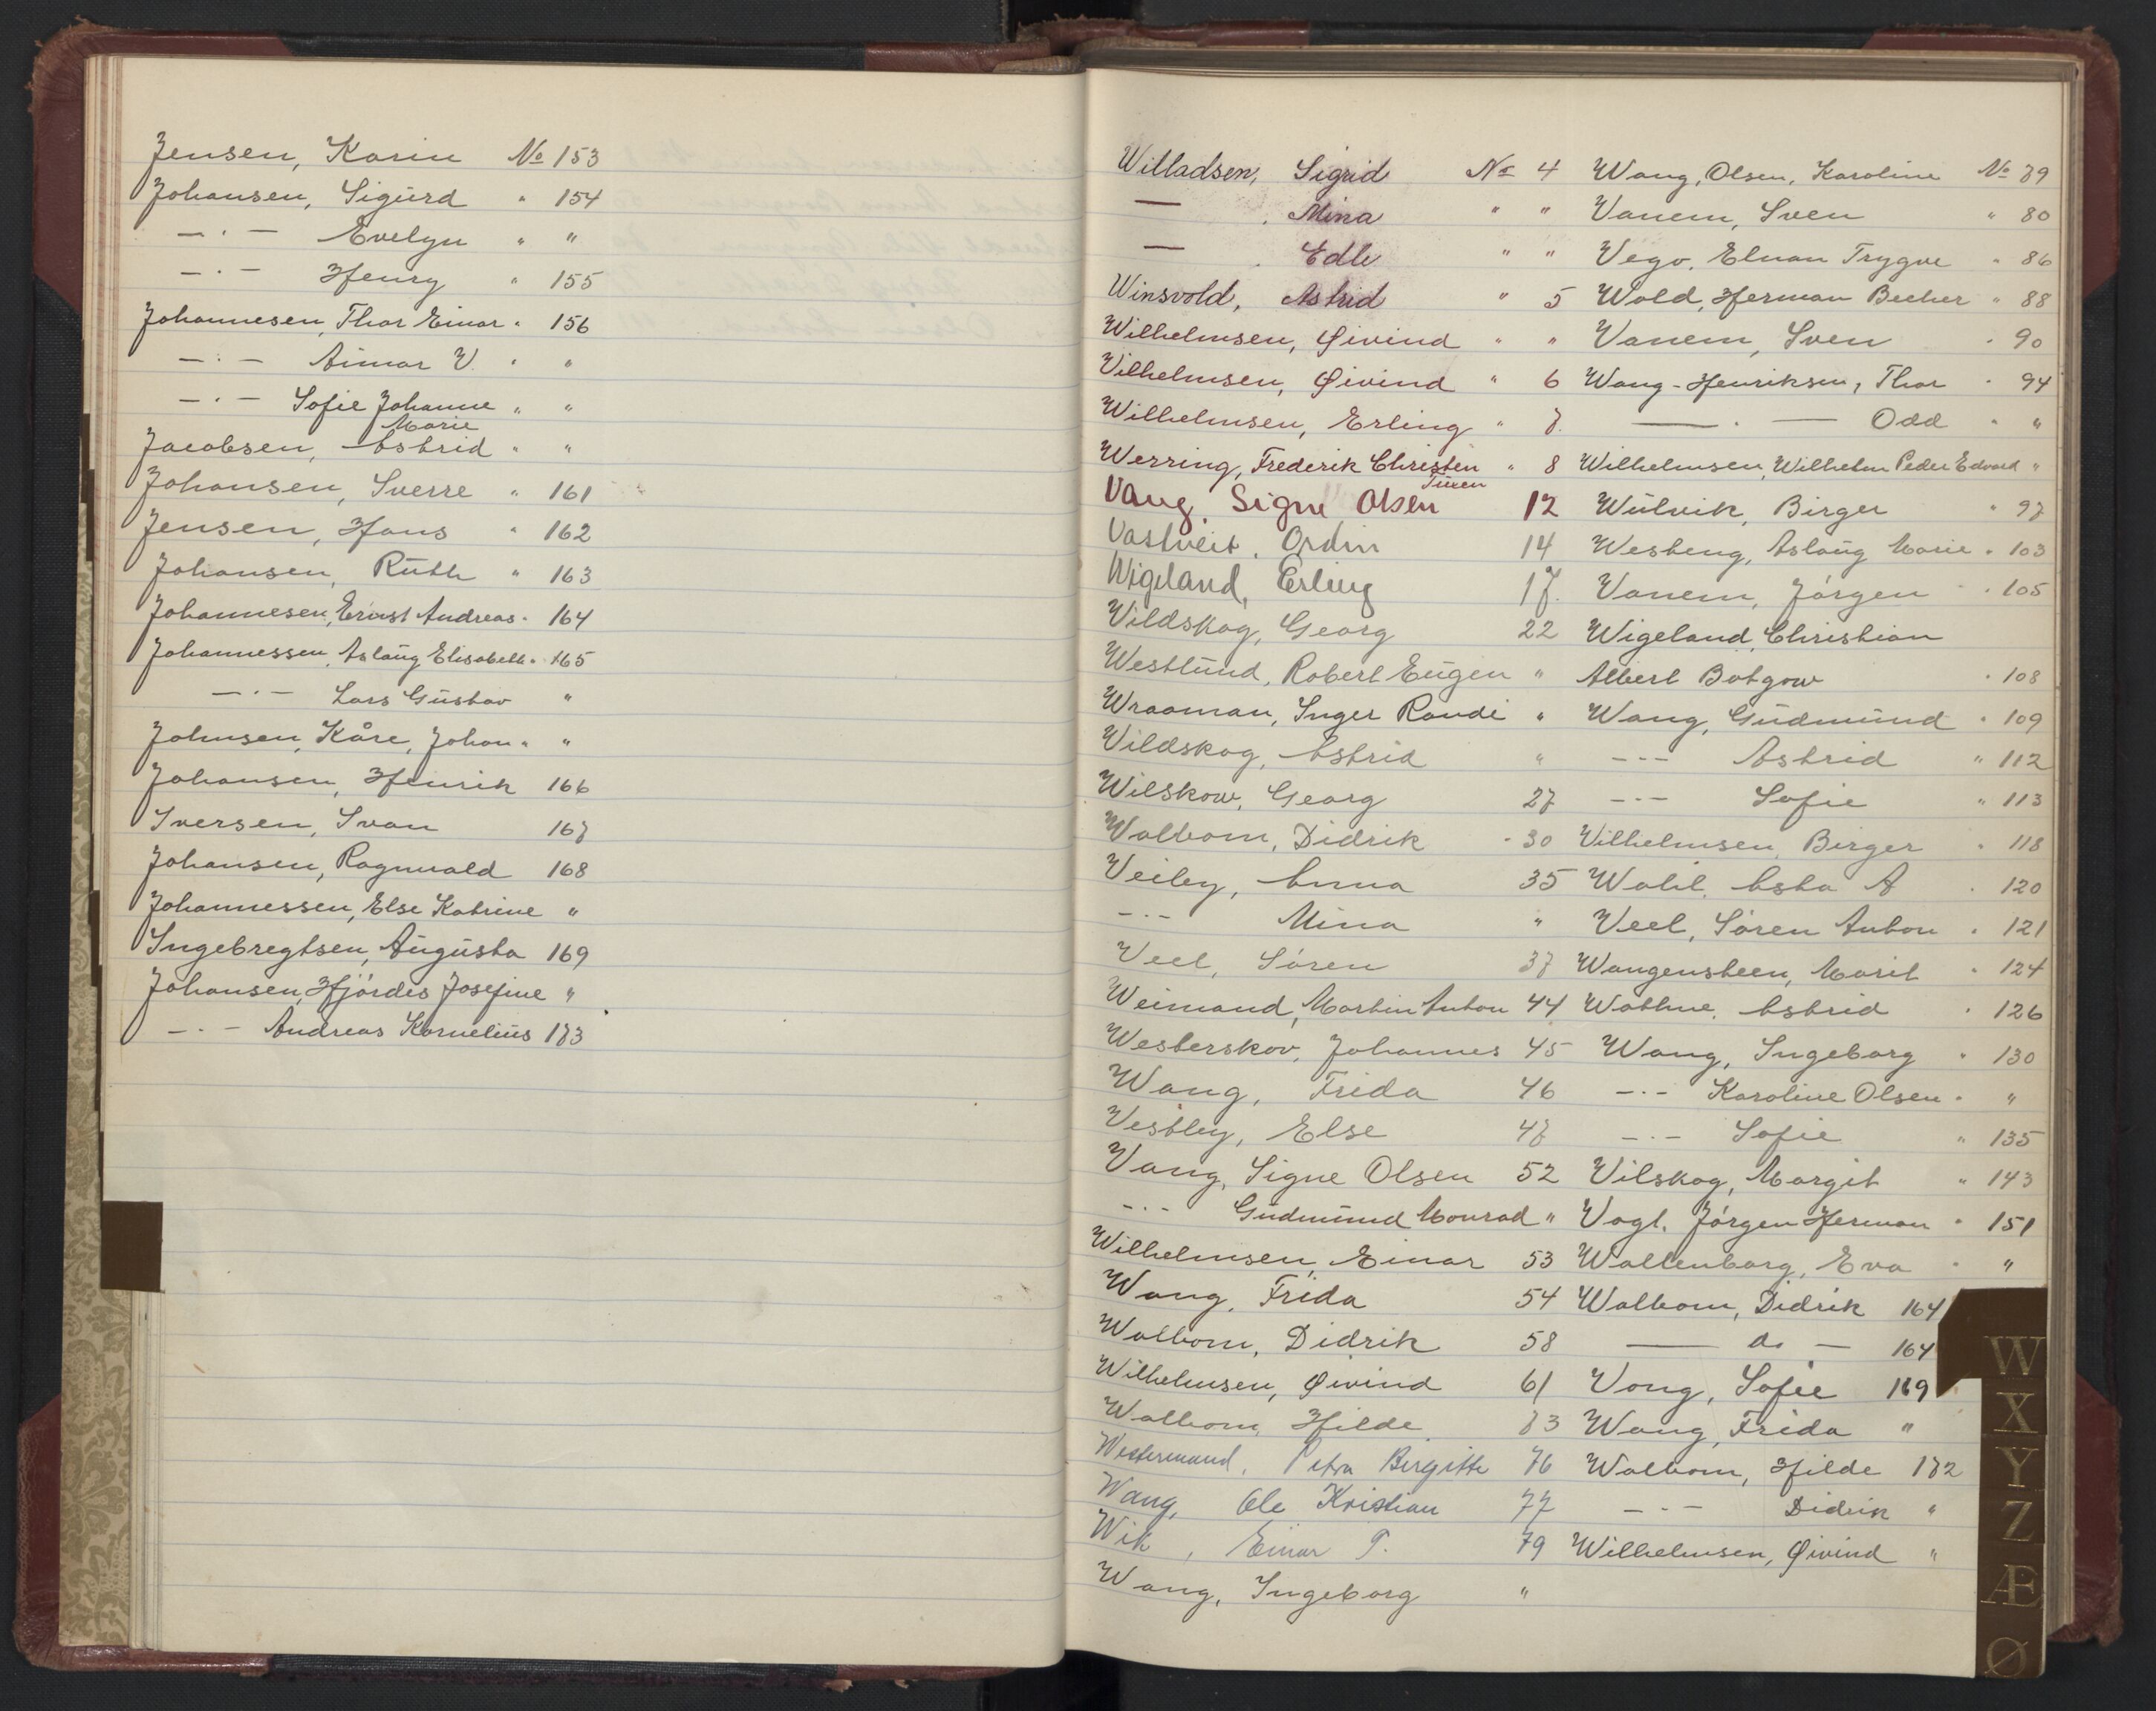 Jensen, Karin No 153
Johansen, Sigurd " 154
— · — Evelyn " "
— · — Henry " 155
Johannesen, Thor Einar " 156
— · — Aimar V. " "
— · — Sofie Johanne " "
Marie
Jacobsen, Astrid " "
Johansen, Sverre " 161
Jensen, Hans " 162
Johansen, Ruth " 163
Johannesen, Ernst Andreas " 164
Johannessen, Aslaug Elisabeth " 165
— · — Lars Gustav "
Johnsen, Kåre, Johan " "
Johansen, Henrik 166
Iversen, Ivan 167
Johansen, Ragnvald 168
Johannessen, Else Katrine "
Ingebregtsen, Augusta 169
Johansen, Hjördis Josefine "
— · — Andreas Kornelius 173
Willadsen, Sigrid No 4
— Mina " "
— Edle " "
Winsvold, Astrid " 5
Wilhelmsen, Øivind " "
Vilhelmsen, Øivind " 6
Wilhelmsen, Erling " 7.
Werring, Frederik Christen " 8
Tuxen
Vang, Signe Olsen 12
Vastveit, Ordin 14
Wigeland, Erling 17.
Vildskog, Georg 22
Westlund, Robert Eugen "
Wraaman, Inger Randi "
Vildskog, Astrid "
Wilskow, Georg 27
Walbom, Didrik " 30
Veiby, Anna 35
— · — Mina "
Veel, Sören 37
Weimand, Martin Anton 44
Westerskov, Johannes 45
Wang, Frida 46
Vestby, Else 47
Vang, Signe Olsen 52
— · — Gudmund Monrad "
Wilhelmsen, Einar 53
Wang, Frida 54
Walbom, Didrik 58
Wilhelmsen, Øivind 61
Walbom, Hilde 73
Westermand, Petra Birgitte 76
Wang, Ole Kristian 77
Wik, Einar P. 79
Wang, Ingeborg "
Wang, Olsen, Karoline No 79
Vanem, Sven " 80
Vego, Elnan Trygve " 86
Wold, Herman Becher " 88
Vanem, Sven " 90
Wang-Henriksen, Thor " 94
— · — Odd " "
Wilhelmsen, Wilhelm Peder Edvard "
Wulvik, Birger " 97
Westeng, Aslaug Marie " 103
Vanem, Jörgen " 105
Wigeland, Christian
Albert Botgow " 108
Wang, Gudmund " 109
— · — Astrid " 112
— · — Sofie " 113
Vilhelmsen, Birger " 118
Wahl, Asta A " 120
Veel, Sören Anton " 121
Wangensteen, Marit " 124
Wathne, Astrid " 126
Wang, Ingeborg " 130
— · — Karoline Olsen " "
— · — Sofie " 135
Vilskog, Margit " 143
Vogt, Jörgen Herman " 151
Wallenborg, Eva " "
Walbom, Didrik 164
— do — 164
Vang, Sofie 169
Wang, Frida "
Walbom, Hilde 172
— · — Didrik "
Wilhelmsen, Øivind "
W
X
Y
Z
Æ
Ø